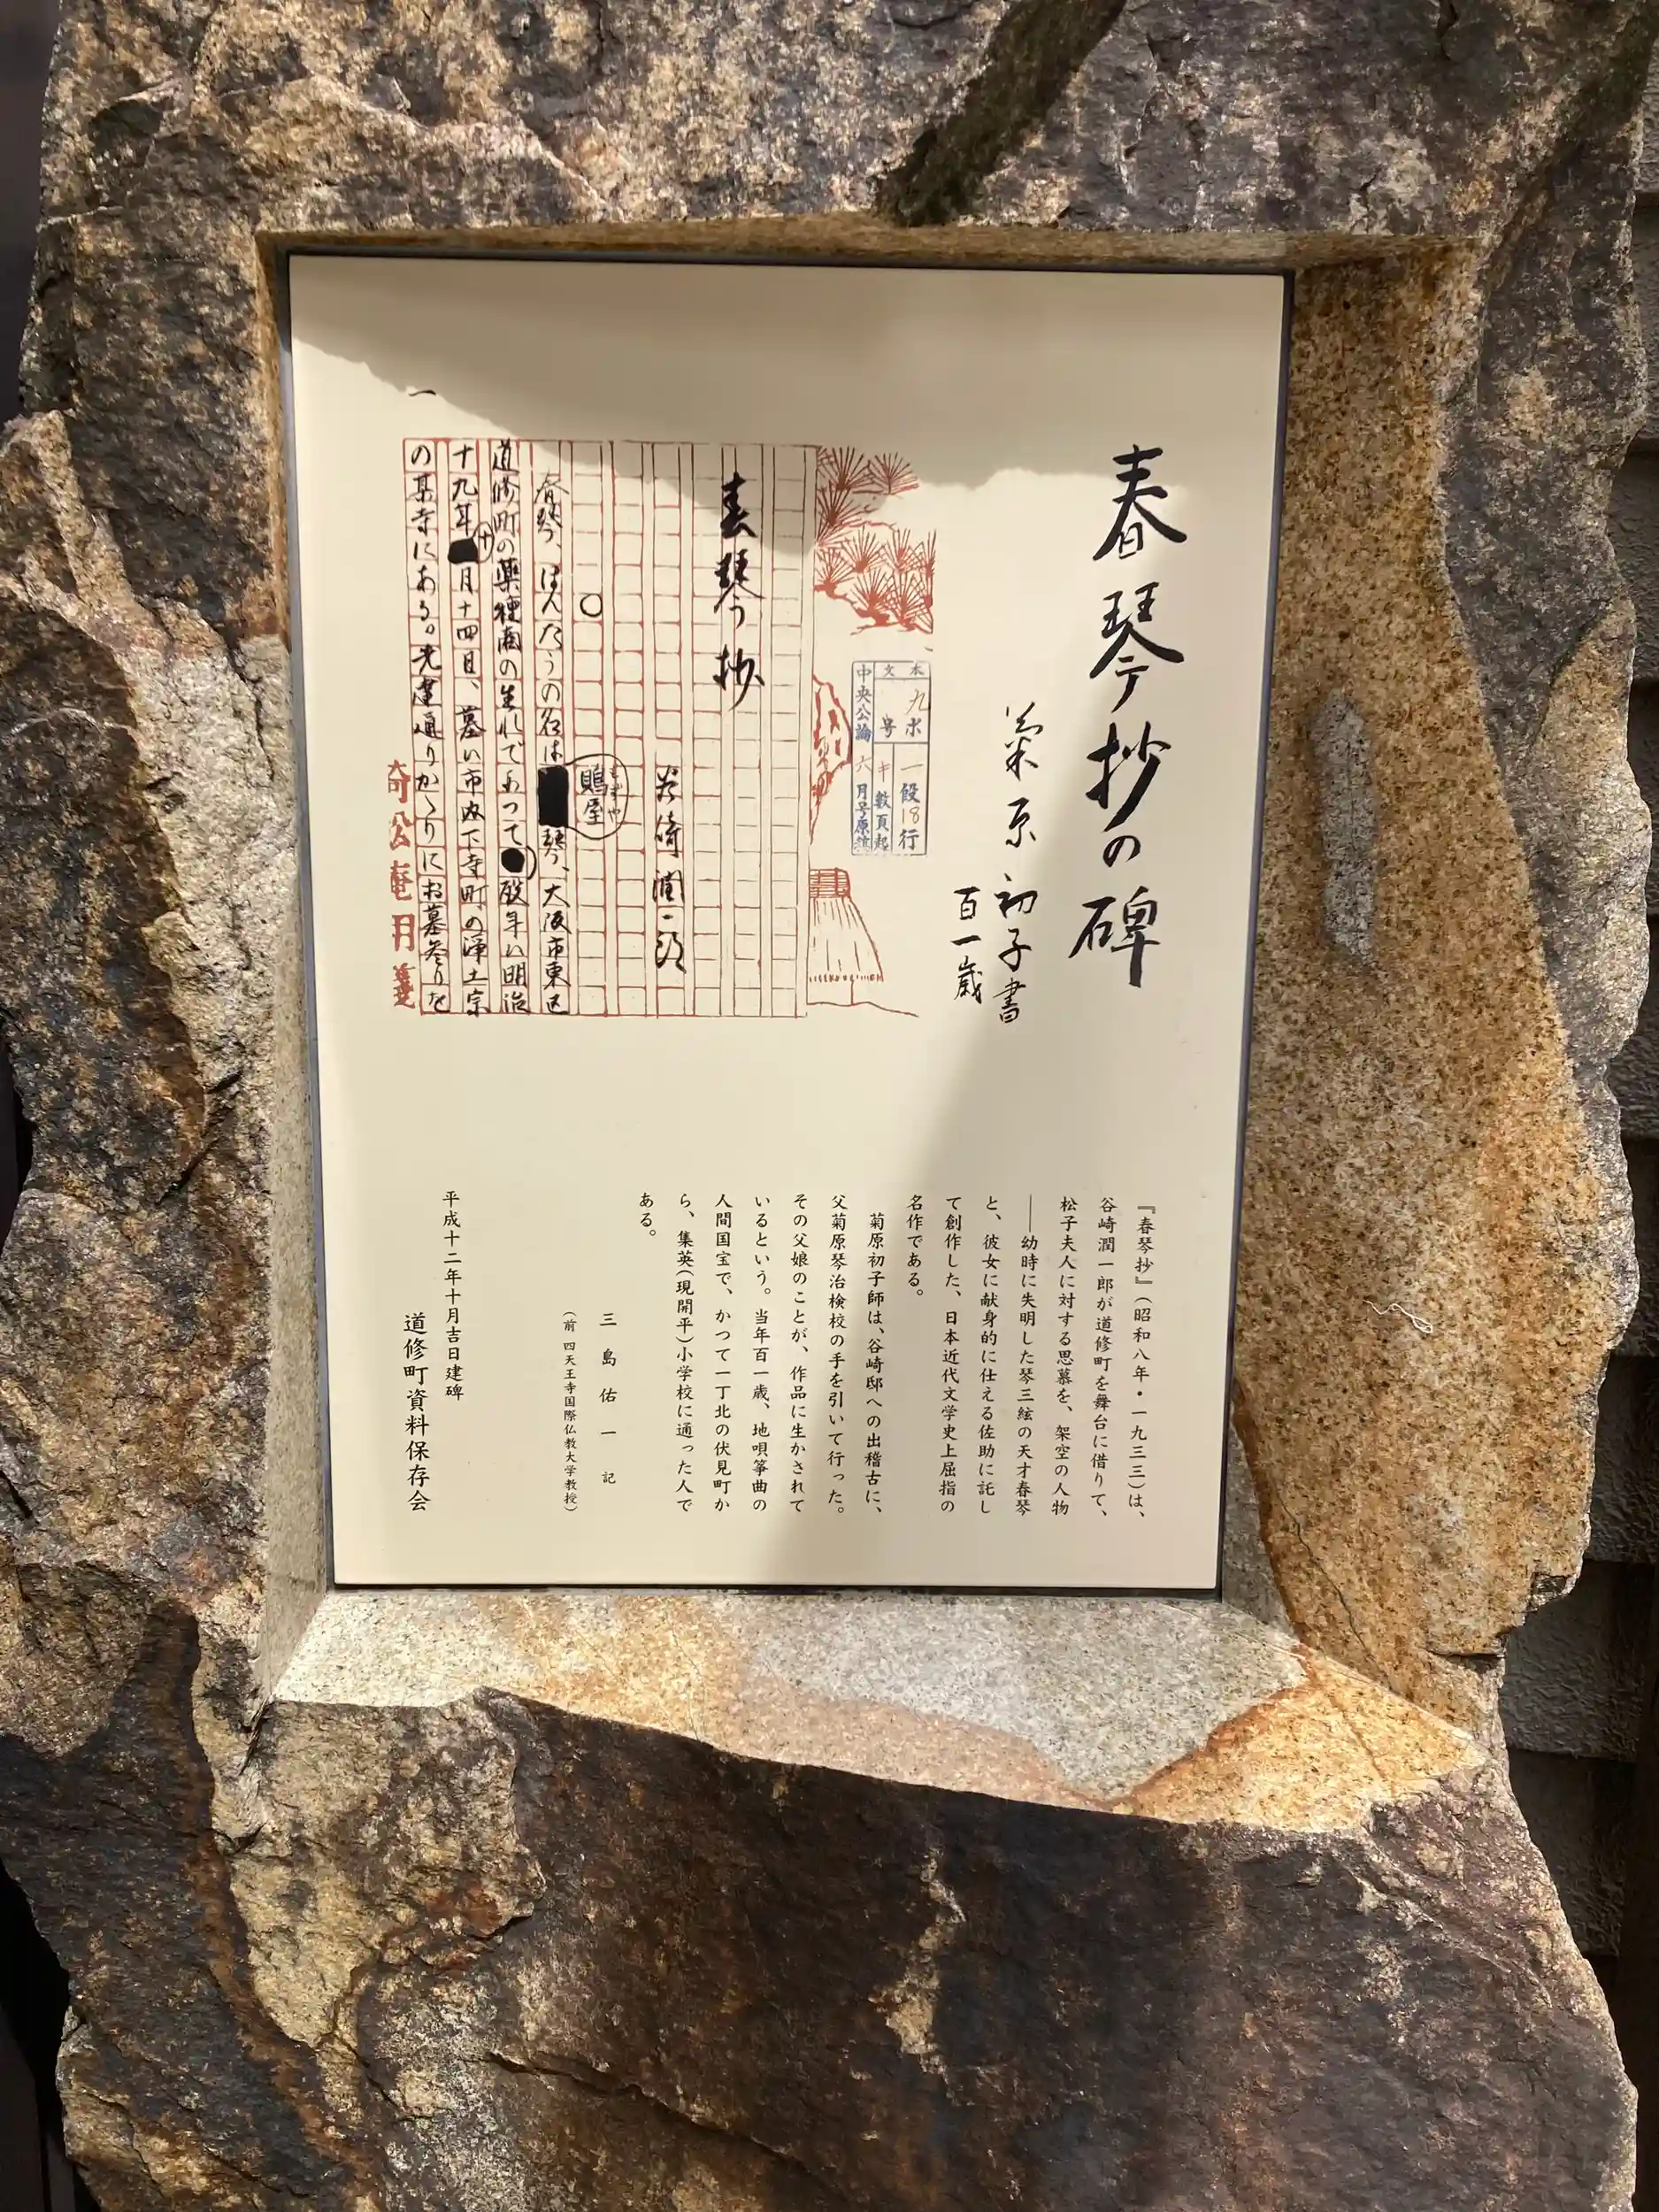 春琴抄の碑
菊原初子書
百一歳
本文
九ポ一段18行
号キ数頁起
中央公論六月号原稿
春琴抄
谷崎潤一郎
○
春琴、ほんたうの名は
鵙屋
もずや
琴、大阪市東区
道修町の薬種商の生れであつて
歿年は明治
十九年十月十四日、墓は市内下寺町の浄土宗
の某寺にある。先達通りかゝりにお墓参りを
一
倚松庵用箋
『春琴抄』(昭和八年・一九三三)は、
谷崎潤一郎が道修町を舞台に借りて、
松子夫人に対する思慕を、架空の人物
――幼時に失明した琴三絃の天才春琴
と、彼女に献身的に仕える佐助に託し
て創作した、日本近代文学史上屈指の
名作である。
菊原初子師は、谷崎邸への出稽古に、
父菊原琴治検校の手を引いて行った。
その父娘のことが、作品に生かされて
いるという。当年百一歳、地唄箏曲の
人間国宝で、かつて一丁北の伏見町か
ら、集英(現開平)小学校に通った人で
ある。
三島佑一記
(前 四天王寺国際仏教大学教授)
平成十二年十月吉日建碑
道修町資料保存会